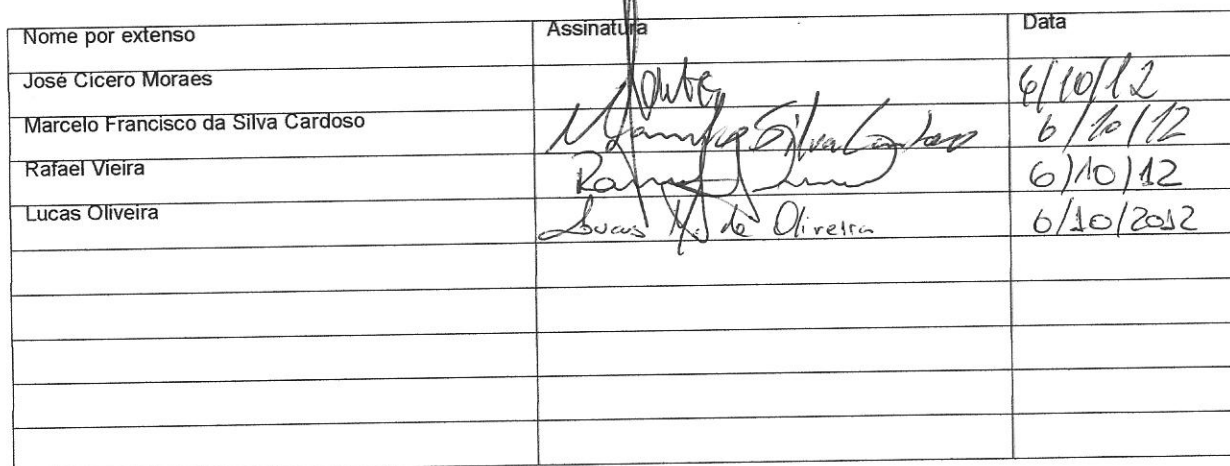 Nome por extenso Assinatura Data
José Cicero Moraes 6/10/12
Marcelo Francisco da Silva Cardoso Silva Cardoso 6/10/12
Rafael Vieira 6/10/12
Lucas Oliveira Lucas M. de Oliveira 6/10/2012